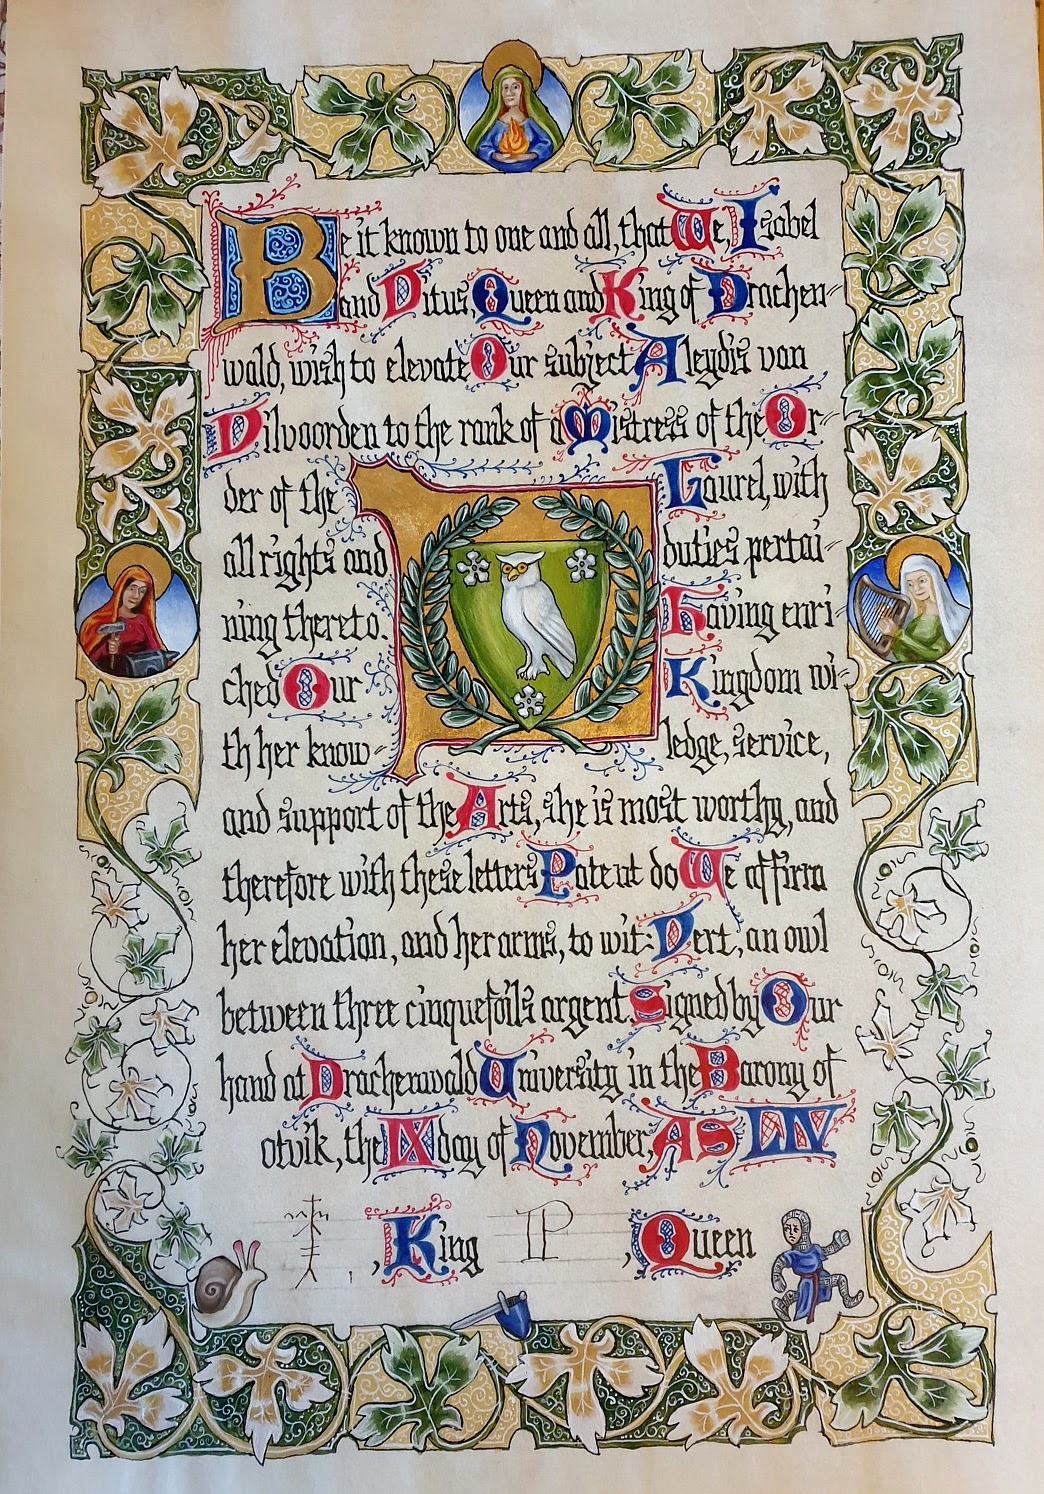 Be it known to one and all, that We, Isabel
and Vitus, Queen and King of Drachen-
wald, wish to elevate Our subject Aleydis van
Vilvoorden to the rank of a Mistress of the Or-
der of the Laurel, with
all rights and duties pertai-
ning thereto. Having enri-
ched Our Kingdom wi-
th her know- ledge, service,
and support of the Arts, she is most worthy, and
therefore with these letters Patent do We affirm
her elevation, and her arms, to wit: Vert, an owl
between three cinquefoils argent. Signed by Our
hand at Drachenwald University in the Barony of
otvik, the IX day of November, AS LIV
, King , Queen